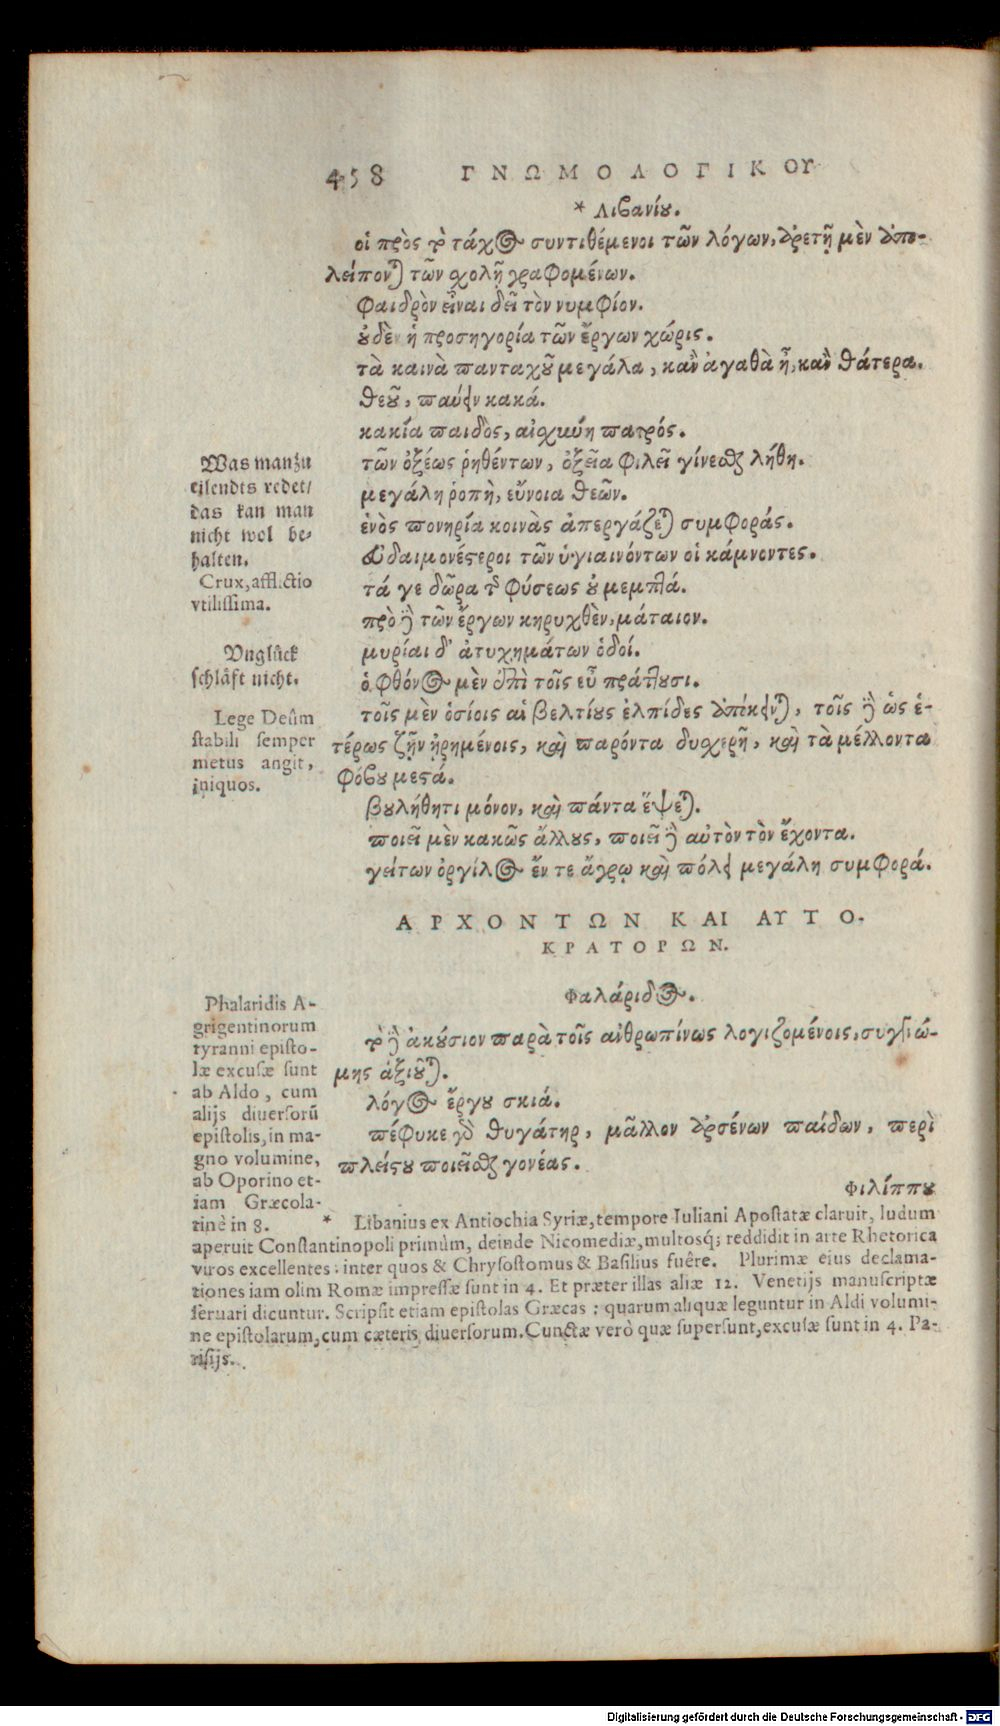 458 ΓΝΩΜΟΛΟΓΙΚΟΥ
* Λιβανίου.
οἱ πρὸς τὸ τάχος συντιθέμενοι τῶν λόγων, ἀρετῇ μὲν ἀπο-
λείπονται τῶν σχολῇ γραφομένων.
φαιδρὸν εἶναι δεῖ τὸν νυμφίον.
οὐδὲν ἡ προσηγορία τῶν ἔργων χώρις.
τὰ καινὰ πανταχοῦ μεγάλα, κἂν ἀγαθὰ ᾖ, κἂν θάτερα.
θεοῦ, παύειν κακά.
κακία παιδὸς, αἰσχύνη πατρός.
τῶν ὀξέως ῥηθέντων, ὀξεῖα φιλεῖ γίνεσθαι λήθη.
μεγάλη ῥοπὴ, εὔνοια θεῶν.
ἑνὸς πονηρία κοινὰς ἀπεργάζεται συμφοράς.
εὐδαιμονέστεροι τῶν ὑγιαινόντων οἱ κάμνοντες.
τά γε δῶρα τῆς φύσεως οὐ μεμπτά.
πρὸ δὲ τῶν ἔργων κηρυχθὲν, μάταιον.
μυρίαι δ' ἀτυχημάτων ὁδοί.
ὁ φθόνος μὲν ἐπὶ τοῖς εὖ πράττουσι.
τοῖς μὲν ὁσίοις αἱ βελτίους ἐλπίδες ἀπίκειν), τοῖς δὲ ὡς ἑ-
τέρως ζῇν ᾑρημένοις, καὶ παρόντα δυχερῆ, καὶ τὰ μέλλοντα
φόβου μεστά.
βουλήθητι μόνον, καὶ πάντα ἕψεται.
ποιεῖ μὲν κακῶς ἄλλους, ποιεῖ δὲ αὐτὸν τὸν ἔχοντα.
γείτων ὀργίλος ἔν τε ἄγρῳ καὶ πόλει μεγάλη συμφορά.
Was man zu
eilendts redet/
das kan man
nicht wol be-
halten.
Crux, afflictio
vtilissima.
Vnglück
schläft nicht.
Lege Deûm
stabili semper
metus angit,
iniquos.
ΑΡΧΟΝΤΩΝ ΚΑΙ ΑΥΤΟ-
ΚΡΑΤΟΡΩΝ.
Φαλάριδος.
τὸ δὲ ἀκούσιον παρὰ τοῖς ἀνθρωπίνως λογιζομένοις, συγγνώ-
μης ἀξιοῦται.
λόγος ἔργου σκιά.
πέφυκε γὸ θυγάτηρ, μᾶλλον ἀρσένων παίδων, περὶ
πλείστου ποιεῖσθαι γονέας.
Φιλίππου
Phalaridis A-
grigentinorum
tyranni episto-
læ excusæ sunt
ab Aldo, cum
alijs diuersorũ
epistolis, in ma-
gno volumine,
ab Oporino et-
iam Græcola-
tinè in 8.
* Libanius ex Antiochia Syriæ, tempore Iuliani Apostatæ claruit, ludum
aperuit Constantinopoli primùm, deinde Nicomediæ, multosq́; reddidit in arte Rhetorica
viros excellentes: inter quos & Chrysostomus & Basilius fuêre. Plurimæ eius declama-
tiones iam olim Romæ impressæ sunt in 4. Et præter illas aliæ 12. Venetijs manuscriptæ
seruari dicuntur. Scripsit etiam epistolas Græcas: quarum aliquæ leguntur in Aldi volumi-
ne epistolarum, cum cæteris diuersorum. Cunctæ verò quæ supersunt, excusæ sunt in 4. Pa-
risijs.
Digitalisierung gefördert durch die Deutsche Forschungsgemeinschaft - DFG